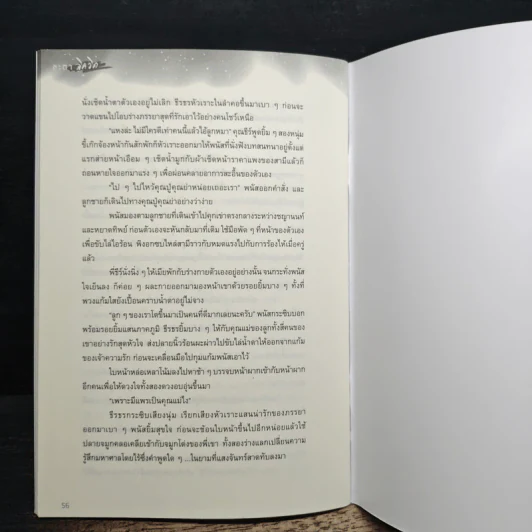 นั่งเช็ดน้ำตาตัวเองอยู่ไม่เลิก ธีรธรหัวเราะในลำคอขึ้นมาเบา ๆ ก่อนจะ
วาดแขนไปโอบร่างภรรยาสุดที่รักเอาไว้อย่างคนโชว์เหนือ
"แหงล่ะ ไม่มีใครดีเท่าคนนี้แล้วไอ้ลูกหมา" คุณธีร์พูดยิ้ม ๆ สองหนุ่ม
ขี้เก๊กจ้องหน้ากันสักพักก็หัวเราะออกมาให้พนัสที่นั่งฟังบทสนทนาอยู่ตั้งแต่
แรกส่ายหน้าเอือม ๆ เช็ดน้ำมูกกับผ้าเช็ดหน้าราคาแพงของสามีแล้วก็
ถอนหายใจออกมาแรง ๆ เพื่อผ่อนคลายอาการสะอื้นของตัวเอง
"ไป ๆ ไปไหว้คุณปู่คุณย่าหน่อยเถอะเรา" พนัสออกคำสั่ง และ
ลูกชายก็เดินไปทางคุณปู่คุณย่าอย่างว่าง่าย
พนัสมองตามลูกชายที่เดินเข้าไปคุกเข่าตรงกลางระหว่างชญานนท์
และหยาดทิพย์ ก่อนตัวเองจะหันกลับมาที่เดิม ใช้มือพัด ๆ ที่หน้าของตัวเอง
เพื่อขับไล่ไอร้อน พิงอกซบไหล่สามีราวกับหมดแรงไปกับการร้องไห้เมื่อครู่
แล้ว
พี่ธีร์นั่งนิ่ง ๆ ให้เมียพักกับร่างกายตัวเองอยู่อย่างนั้น จนกระทั่งพนัส
ใจเย็นลง ก็ค่อย ๆ ผละกายออกมามองหน้าเขาด้วยรอยยิ้มบาง ๆ ทั้งที่
พวงแก้มใสยังเปื้อนคราบน้ำตาอยู่ไม่จาง
"ลูก ๆ ของเราโตขึ้นมาเป็นคนที่ดีมากเลยนะครับ" พนัสกระซิบบอก
พร้อมรอยยิ้มแสนภาคภูมิ ธีรธรยิ้มบาง ๆ ให้กับคุณแม่ของลูกทั้งสี่คนของ
เขาอย่างรักสุดหัวใจ ส่งปลายนิ้วร้อนผะผ่าวไปซับไล่น้ำตาให้ออกจากแก้ม
ของเจ้าความรัก ก่อนจะเคลื่อนมือไปกุมแก้มพนัสเอาไว้
ใบหน้าหล่อเหลาโน้มลงไปหาช้า ๆ บรรจบหน้าผากเข้ากับหน้าผาก
อีกคนเพื่อให้ดวงใจทั้งสองดวงอบอุ่นขึ้นมา
"เพราะมีแพรเป็นคุณแม่ไง"
ธีรธรกระซิบเสียงนุ่ม เรียกเสียงหัวเราะแสนน่ารักของภรรยา
ออกมาเบา ๆ พนัสยิ้มสุขใจ ก่อนจะช้อนใบหน้าขึ้นไปอีกหน่อยแล้วใช้
ปลายจมูกคลอเคลียเข้ากับจมูกโด่งของพี่เขา ทั้งสองร่างแลกเปลี่ยนความ
รู้สึกมหาศาลโดยไร้ซึ่งคำพูดใด ๆ ...ในยามที่แสงจันทร์สาดทับลงมา
56